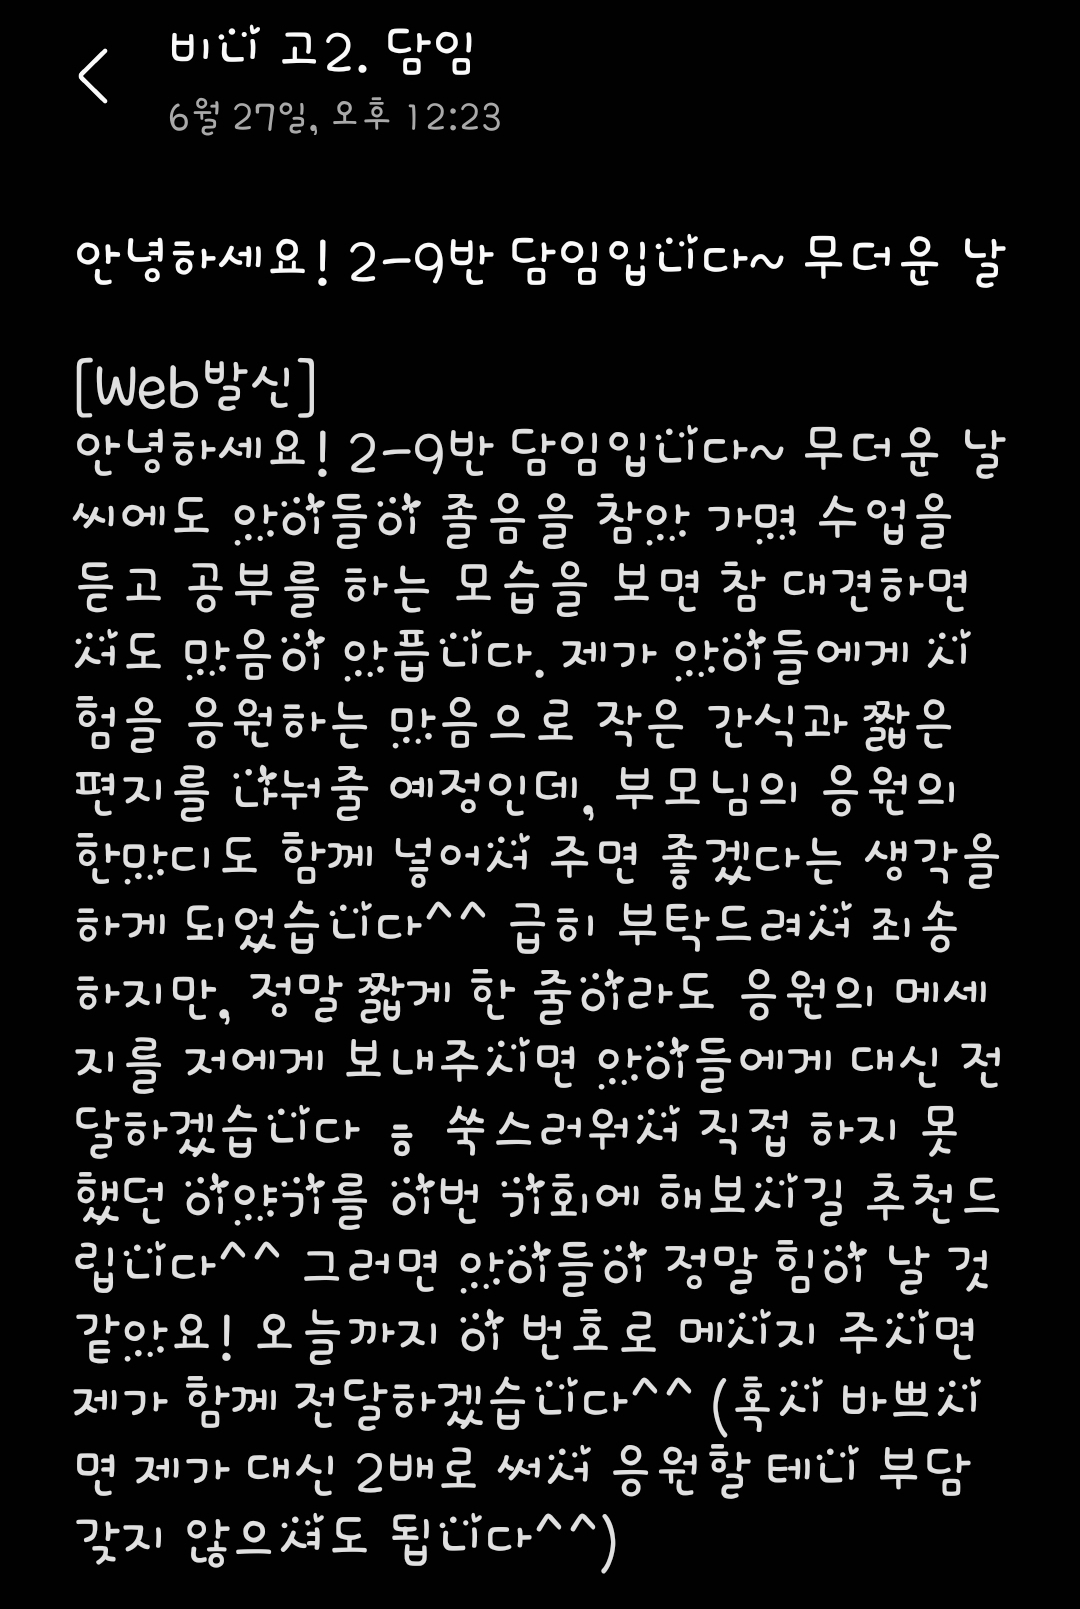 비니 고2. 담임
6월 27일, 오후 12:23
안녕하세요! 2-9반 담임입니다~ 무더운 날
[Web발신]
안녕하세요! 2-9반 담임입니다~ 무더운 날
씨에도 아이들이 졸음을 참아 가면 수업을
듣고 공부를 하는 모습을 보면 참 대견하면
서도 마음이 아픕니다. 제가 아이들에게 시
험을 응원하는 마음으로 작은 간식과 짧은
편지를 나눠줄 예정인데, 부모님의 응원의
한마디도 함께 넣어서 주면 좋겠다는 생각을
하게 되었습니다^^ 급히 부탁드려서 죄송
하지만, 정말 짧게 한 줄이라도 응원의 메세
지를 저에게 보내주시면 아이들에게 대신 전
달하겠습니다 ㅎ 쑥스러워서 직접 하지 못
했던 이야기를 이번 기회에 해보시길 추천드
립니다^^ 그러면 아이들이 정말 힘이 날 것
같아요! 오늘까지 이 번호로 메시지 주시면
제가 함께 전달하겠습니다^^ (혹시 바쁘시
면 제가 대신 2배로 써서 응원할 테니 부담
갖지 않으셔도 됩니다^^)